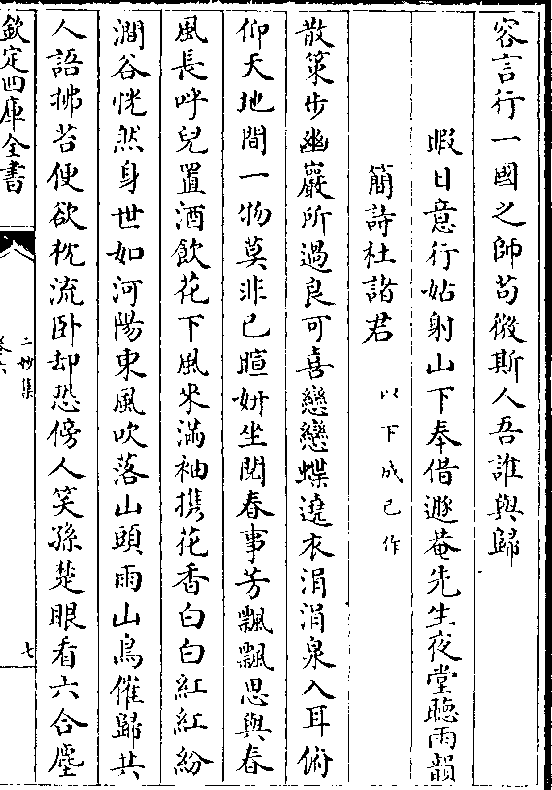 容言行一國之師茍微斯人吾誰與歸
暇日意行姑射山下奉借遯菴先生夜堂聽雨韻
簡詩社諸君
以下成己作
散策步幽巖所過良可喜戀戀蝶遶衣涓涓泉入耳俯
仰天地間一物莫非已暄妍坐閲春事芳飄飄思與春
風長呼兒置酒飲花下風來滿袖携花香白白紅紅紛
澗谷恍然身世如河陽東風吹落山頭雨山鳥催歸共
人語拂苔便欲枕流卧却恐傍人笑孫楚眼看六合塵
欽定四庫全書
二妙集
卷六
七